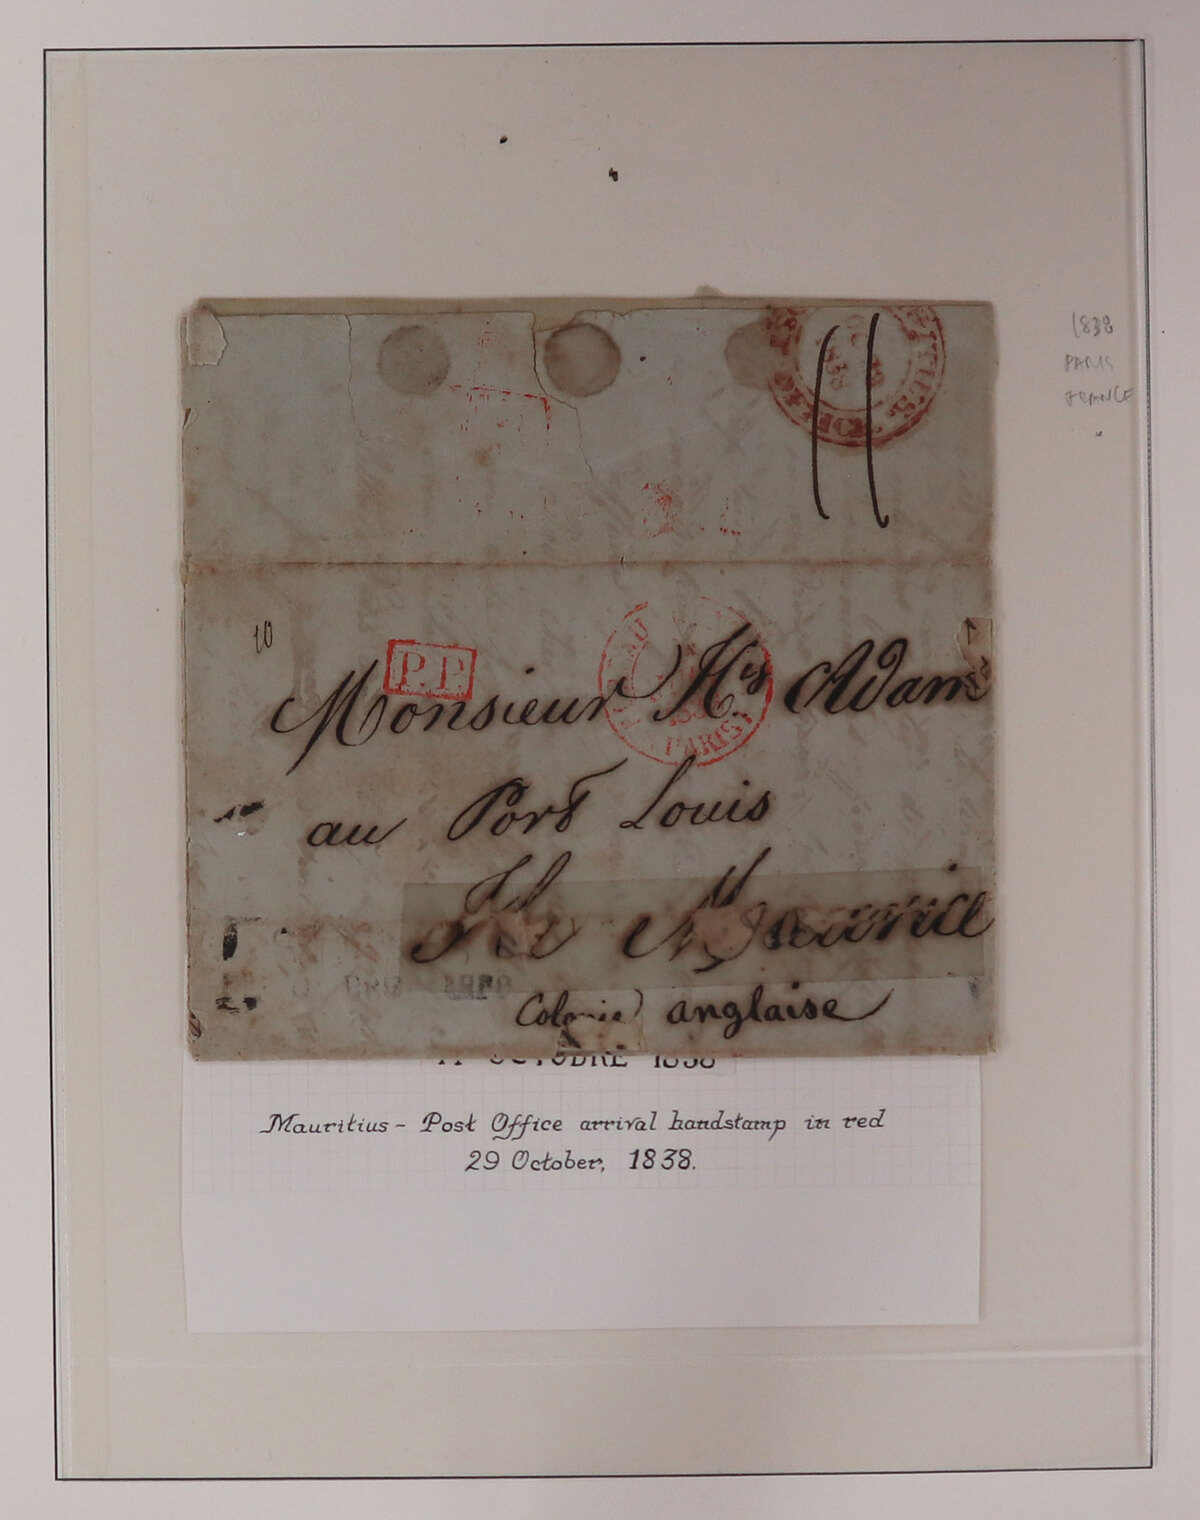 1838
PARIS
FRANCE
11
10
P.P.
PARIS
Monsieur Hy Adam
au Port Louis
Ile Maurice
Colonie anglaise
OCTOBRE 1838
Mauritius - Post Office arrival handstamp in red
29 October, 1838.